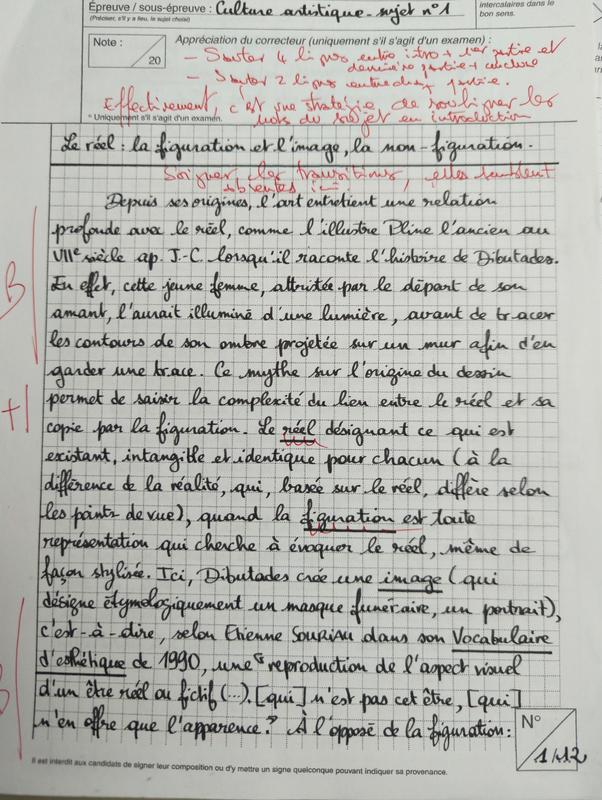 Épreuve / sous-épreuve : Culture artistique - sujet n°1
(Préciser, s'il y a lieu, le sujet choisi)
intercalaires dans le
bon sens.
Note :
20
Appréciation du correcteur (uniquement s'il s'agit d'un examen) :
- Sauter 4 lignes entre intro + 1ère partie et
dernière partie + conclure
- Sauter 2 lignes entre chaque partie.
Effectivement, c'est une stratégie de souligner les
mots du sujet en introduction
* Uniquement s'il s'agit d'un examen.
Le réel : la figuration et l'image, la non-figuration.
Soigner les transitions, elles semblent
absentes ici
Depuis ses origines, l'art entretient une relation
profonde avec le réel, comme l'illustre Pline l'ancien au
VIIe siècle ap. J.-C. lorsqu'il raconte l'histoire de Dibutades.
En effet, cette jeune femme, attristée par le départ de son
amant, l'aurait illuminé d'une lumière, avant de tracer
les contours de son ombre projetée sur un mur afin d'en
garder une trace. Ce mythe sur l'origine du dessin
permet de saisir la complexité du lien entre le réel et sa
copie par la figuration. Le réel désignant ce qui est
existant, intangible et identique pour chacun (à la
différence de la réalité, qui, basée sur le réel, diffère selon
les points de vue), quand la figuration est toute
représentation qui cherche à évoquer le réel, même de
façon stylisée. Ici, Dibutades crée une image (qui
désigne étymologiquement un masque funéraire, un portrait),
c'est-à-dire, selon Etienne SOURIAU dans son Vocabulaire
d'esthétique de 1990, une "reproduction de l'aspect visuel
d'un être réel ou fictif (...). [qui] n'est pas cet être, [qui]
n'en offre que l'apparence." À l'opposé de la figuration :
B
+1
B
N°
1/12
Il est interdit aux candidats de signer leur composition ou d'y mettre un signe quelconque pouvant indiquer sa provenance.